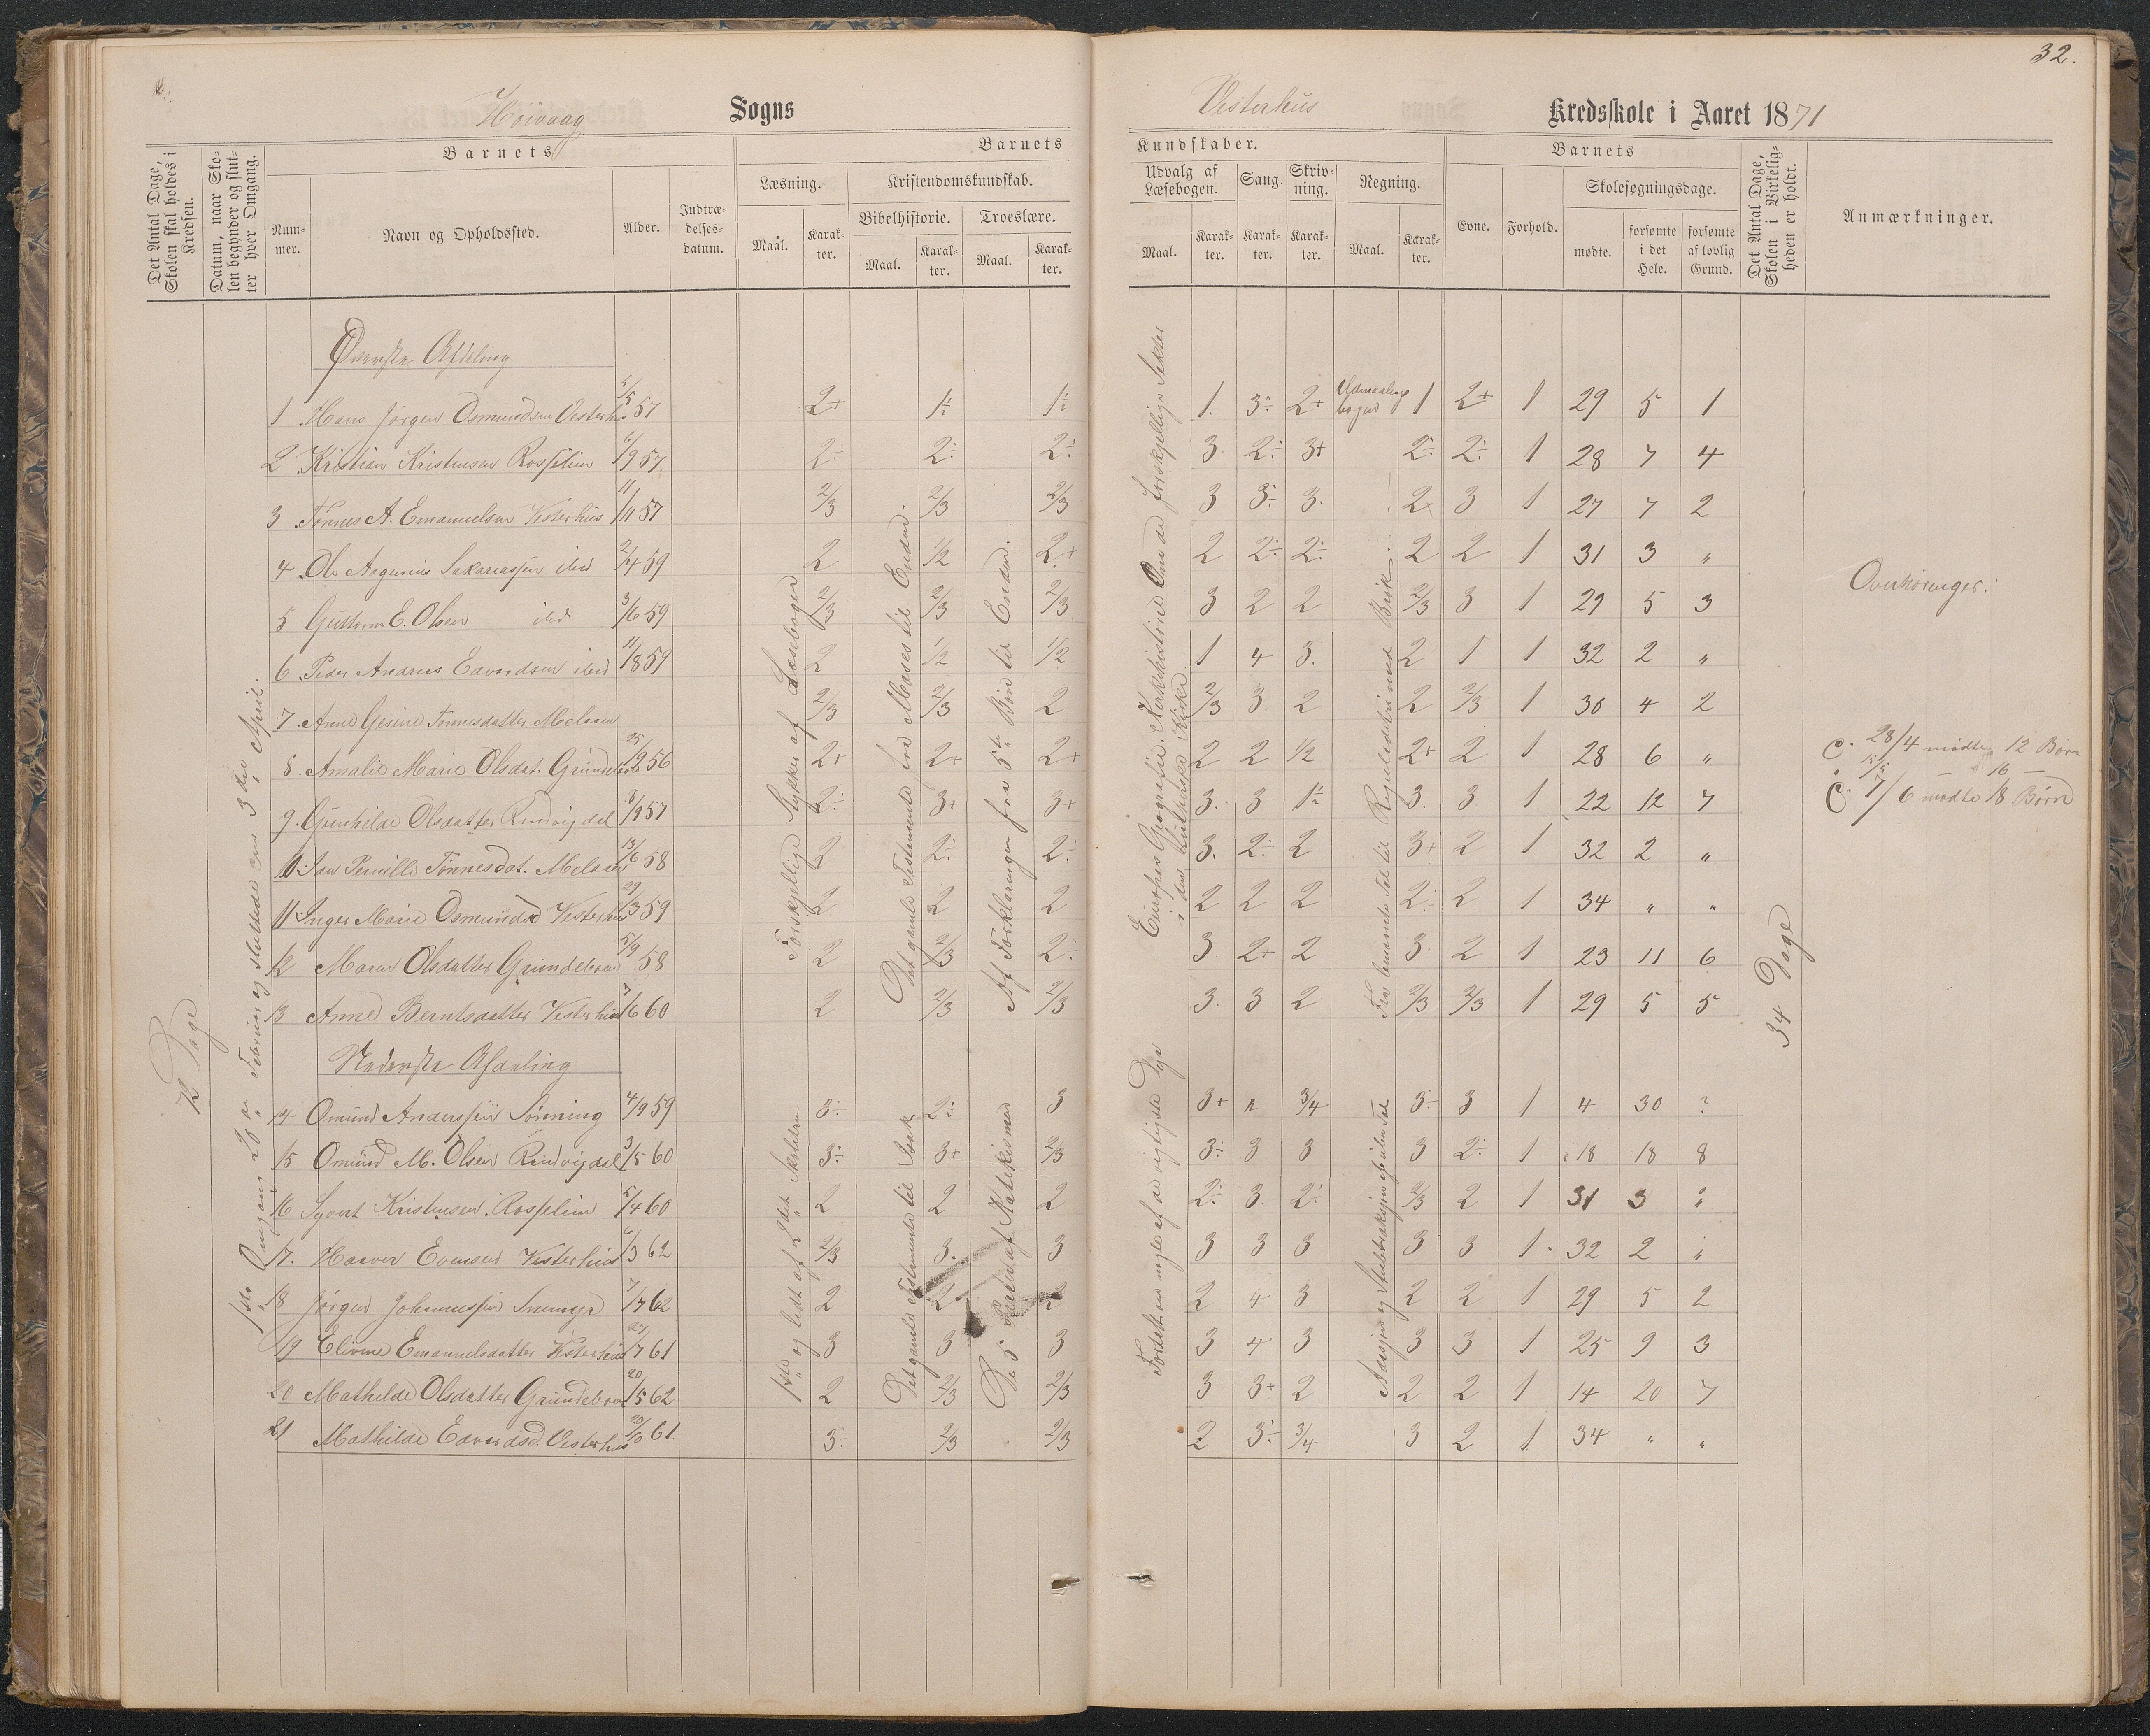 32.
Höivaag Sogns Vesterhus Kredsskole i Aaret 1871
Det Antal Dage, Skolen skal holdes i Kredsen.
Datum, naar Skolen begynder og slutter hver Omgang.
Barnets
Nummer.
Navn og Opholdssted.
Alder.
Indtrædelsesdatum.
Barnets Kundskaber.
Læsning. Kristendomskundskab. Udvalg af Læsebogen. Sang. Skrivning. Regning.
Bibelhistorie. Troeslære.
Maal. Karakter. Maal. Karakter. Maal. Karakter. Maal. Karakter. Karakter. Karakter. Maal. Karakter.
Barnets
Evne. Forhold. Skolesøgningsdage.
mødte. forsømte i det Hele. forsømte af lovlig Grund.
Det Antal Dage, Skolen i Virkeligheden er holdt.
Anmærkninger.
Øverste Afdeling
1 Hans Jørgen Osmundsen Vesterhus 5/5 57 2+ 1÷ 1÷ 1. 3÷ 2+ 1 2+ 1 29 5 1
2 Kristian Kristensen Rosselien 6/9 57 2÷ 2÷ 2÷ 3 2÷ 3+ 2÷ 2÷ 1 28 7 4
3 Tønnes A. Emanuelsen Vesterhus 11/11 57 2/3 2/3 2/3 3 3÷ 3. 2÷ 3 1 27 7 2
4 Ole Aagenius Sakariassen ibid 2/4 59 2 1/2 2+ 2 2÷ 2÷ 2 2 1 31 3 "
5 Guttorm E. Olsen ibid 3/6 59 2/3 2/3 2/3 3 2 2 2/3 3 1 29 5 3
6 Peder Andreas Edvardsen ibid 11/8 59 2 1/2 1/2 1 4 3. 2 1 1 32 2 "
7. Anne Gesine Tønnesdatter Melaaen 2/3 2/3 2 2/3 3. 2 2 2/3 1 30 4 2
8. Amalie Marie Olsdat. Grundeleen 25/9 56 2+ 2+ 2+ 2 2 1/2 2+ 2 1 28 6 "
9. Gunhilde Olsdatter Rindvigdal 8/9 57 2÷ 3+ 3+ 3. 3 1÷ 3. 3 1 22 12 7
10. Pernille Tønnesdat. Melaaen 13/6 58 2 2÷ 2÷ 3. 2÷ 2 3+ 2 1 32 2 "
11. Inger Marie Osmundsd Vesterhus 29/3 59 2 2 2 2 2 2 2÷ 2 1 34 " "
12 Maren Olsdatter Grundeleen 5/9 58 2 2/3 2÷ 3. 2+ 2 3. 2 1 23 11 6
13 Anne Berntsdatter Vesterhus 7/6 60 2 2/3 2/3 3. 3 2 2/3 2/3 1 29 5 5
Nederste Afdeling
14 Omund Anderssen Sønning 4/9 59 3÷ 2÷ 3 3+ " 3/4 3÷ 3 1 4 30 ?
15 Omund M. Olsen Rindvigdal 3/5 60 3÷ 3+ 2/3 3÷ 3 3 3 2÷ 1 18 18 8
16 Syvert Kristensen Rosselien 5/4 60 2 2 2 2÷ 3. 2÷ 2/3 2 1 31 3 "
17. Haaver Evensen Vesterhus 6/3 62 2/3 3. 3 3 3 3 3 3 1. 32 2 "
18 Jørgen Johannessen 7/7 62 2 2 2 2 4 3 2 2 1 29 5 2
19 Elivine Emanuelsdatter Vesterhus 27/7 61 3 3 3 3 4 3 3 3 1 25 9 3
20 Mathilde Olsdatter Grundeleen 20/5 62 2 2/3 2/3 3 3+ 2 2 2 1 14 20 7
21 Mathilde Edvardsd. Vesterhus 20/10 61. 3÷ 2/3 2/3 2 3÷ 3/4 3 2 1 34 " "
12 Dage
1ste Omgang 20de Februar og sluttede den 3die April.
Forskjellige Stykker af Læsebogen
Det gamle Testamente fra Moses til Enden.
Af Forklaringen fra 5te Bøn til Enden.
Europas Geografie Kirkehistorie Om de forskjellige Sekter
i den Lutherske Kirke
1ste og lidt af 2det Skoletrin
Det gamle Testamente til Isak
De 5 Parter af Katekismen
Fortalt om nogle af de vigtigste Dyr
34 Dage
Overhøringer:
E. 28/4 mødte 12 Børn
" 15/5 — " 16 —
E. 7/6 mødte 18 Børn